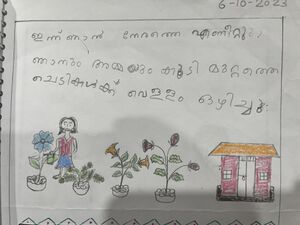 6-10-2023
ഇന്ന് ഞാൻ നേരത്തെ എണീറ്റു.
ഞാനും അമ്മയും കൂടി മുറ്റത്തെ
ചെടികൾക്ക് വെള്ളം ഒഴിച്ചു.